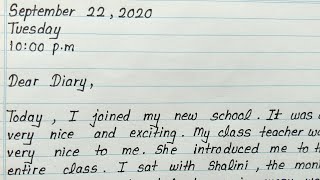 September 22, 2020
Tuesday
10:00 p.m
Dear Diary,
Today, I joined my new school. It was
very nice and exciting. My class teacher
very nice to me. She introduced me to
entire class. I sat with Shalini, the